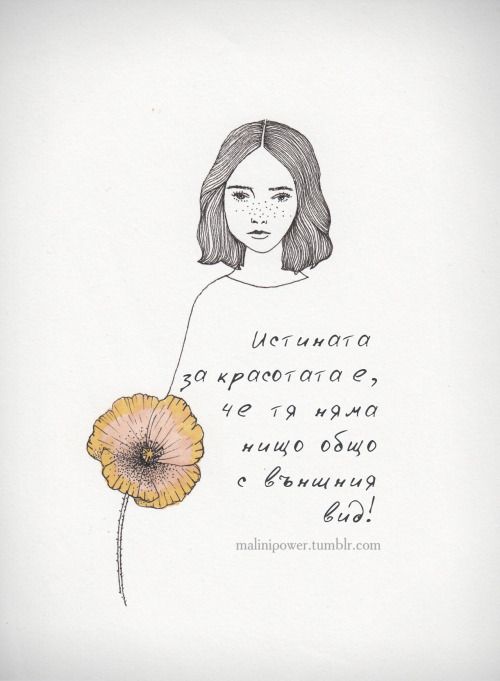 Истината
за красотата е,
че тя няма
нищо общо
с външния
вид!
malinipower.tumblr.com